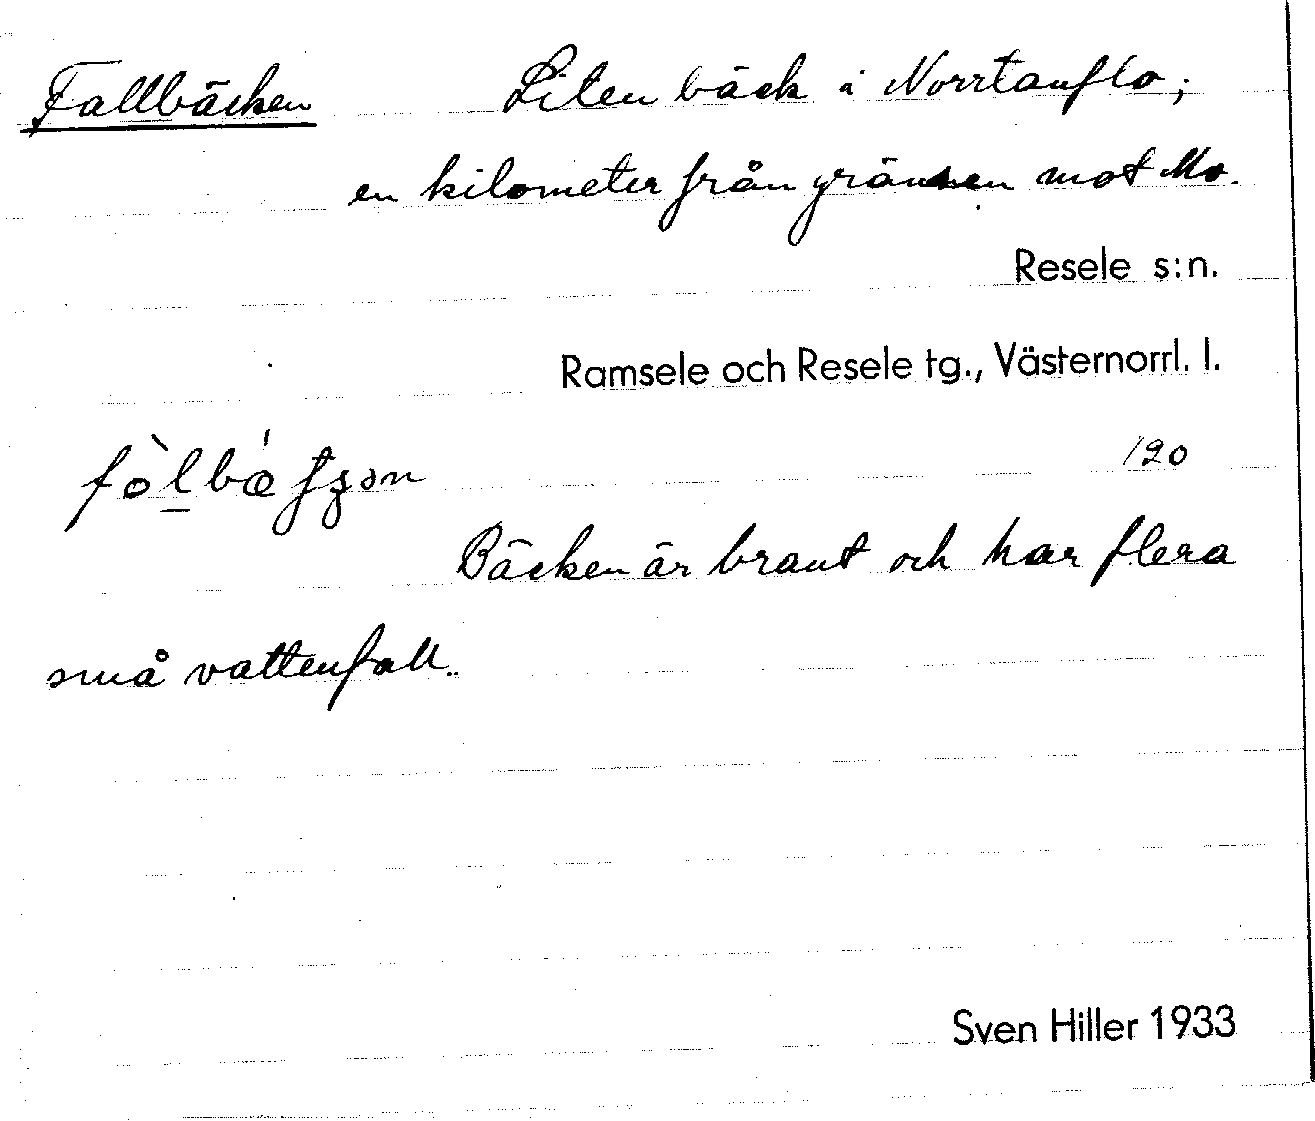 Fallbäcken Liten bäck i Norrtanflo;
en kilometer från gränsen mot Mo.
Resele s:n.
Ramsele och Resele tg., Västernorrl. l.
120
Bäcken är brant och har flera
små vattenfall.
Sven Hiller 1933